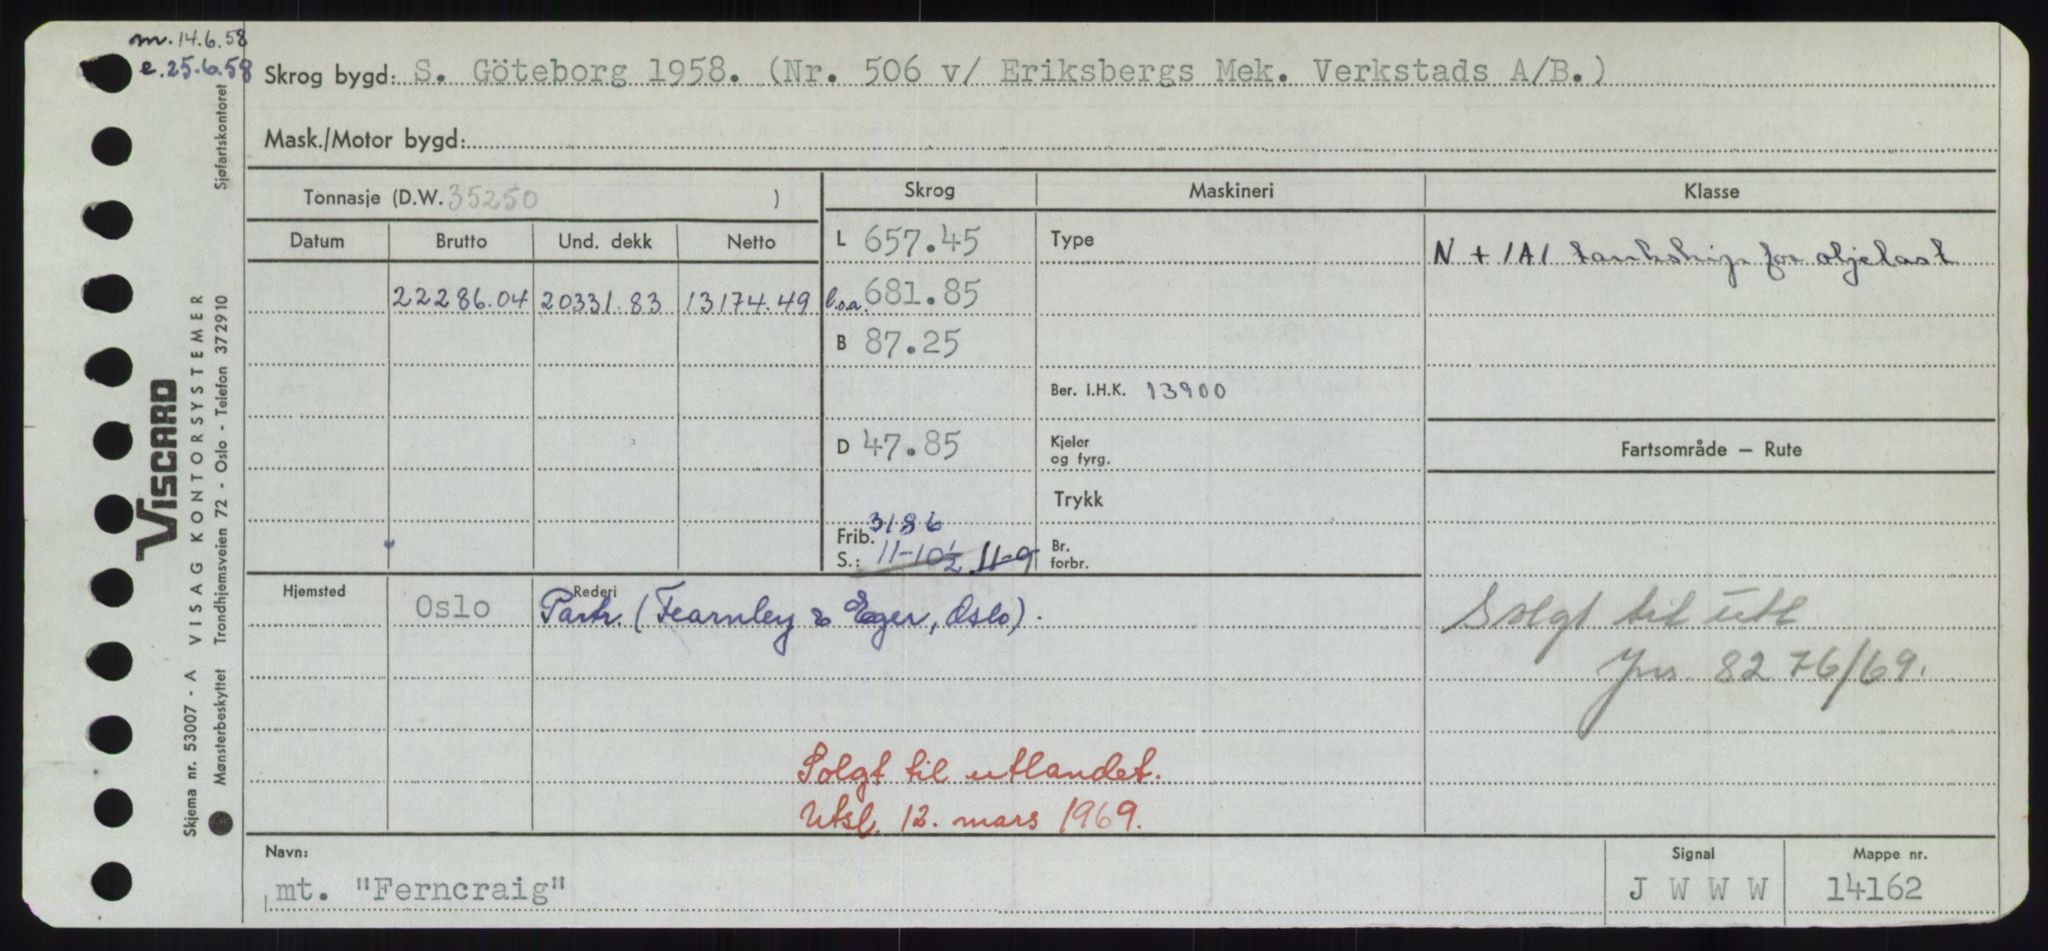 m. 14.6.58
e. 25.6.58
Skrog bygd: S. Göteborg 1958. (Nr. 506 v/ Eriksbergs Mek. Verkstads A/B.)
Mask./Motor bygd:
Tonnasje (D.W. 35250 )
Skrog
Maskineri
Klasse
Datum
Brutto
Und. dekk
Netto
22286.04
20331.83
13174.49
L 657.45
l.o.a. 681.85
B 87.25
D 47.85
Frib. 3186
S.: 11-10½ 11-9
Type
Ber. I.H.K. 13900
Kjeler
og fyrg.
Trykk
Br.
forbr.
N + 1A1 tankskip for oljelast
Fartsområde – Rute
Solgt til utl
Jnr. 8276/69.
Hjemsted
Oslo
Rederi
Partr. (Fearnley & Eger, Oslo).
Solgt til utlandet.
Utsl. 12. mars 1969.
Navn:
mt. "Ferncraig"
Signal
J W W W
Mappe nr.
14162
Skjema nr. 53007 - A VISAG KONTORSYSTEMER
Mønsterbeskyttet Trondhjemsveien 72 - Oslo - Telefon 372910 Sjøfartskontoret
VISCARD